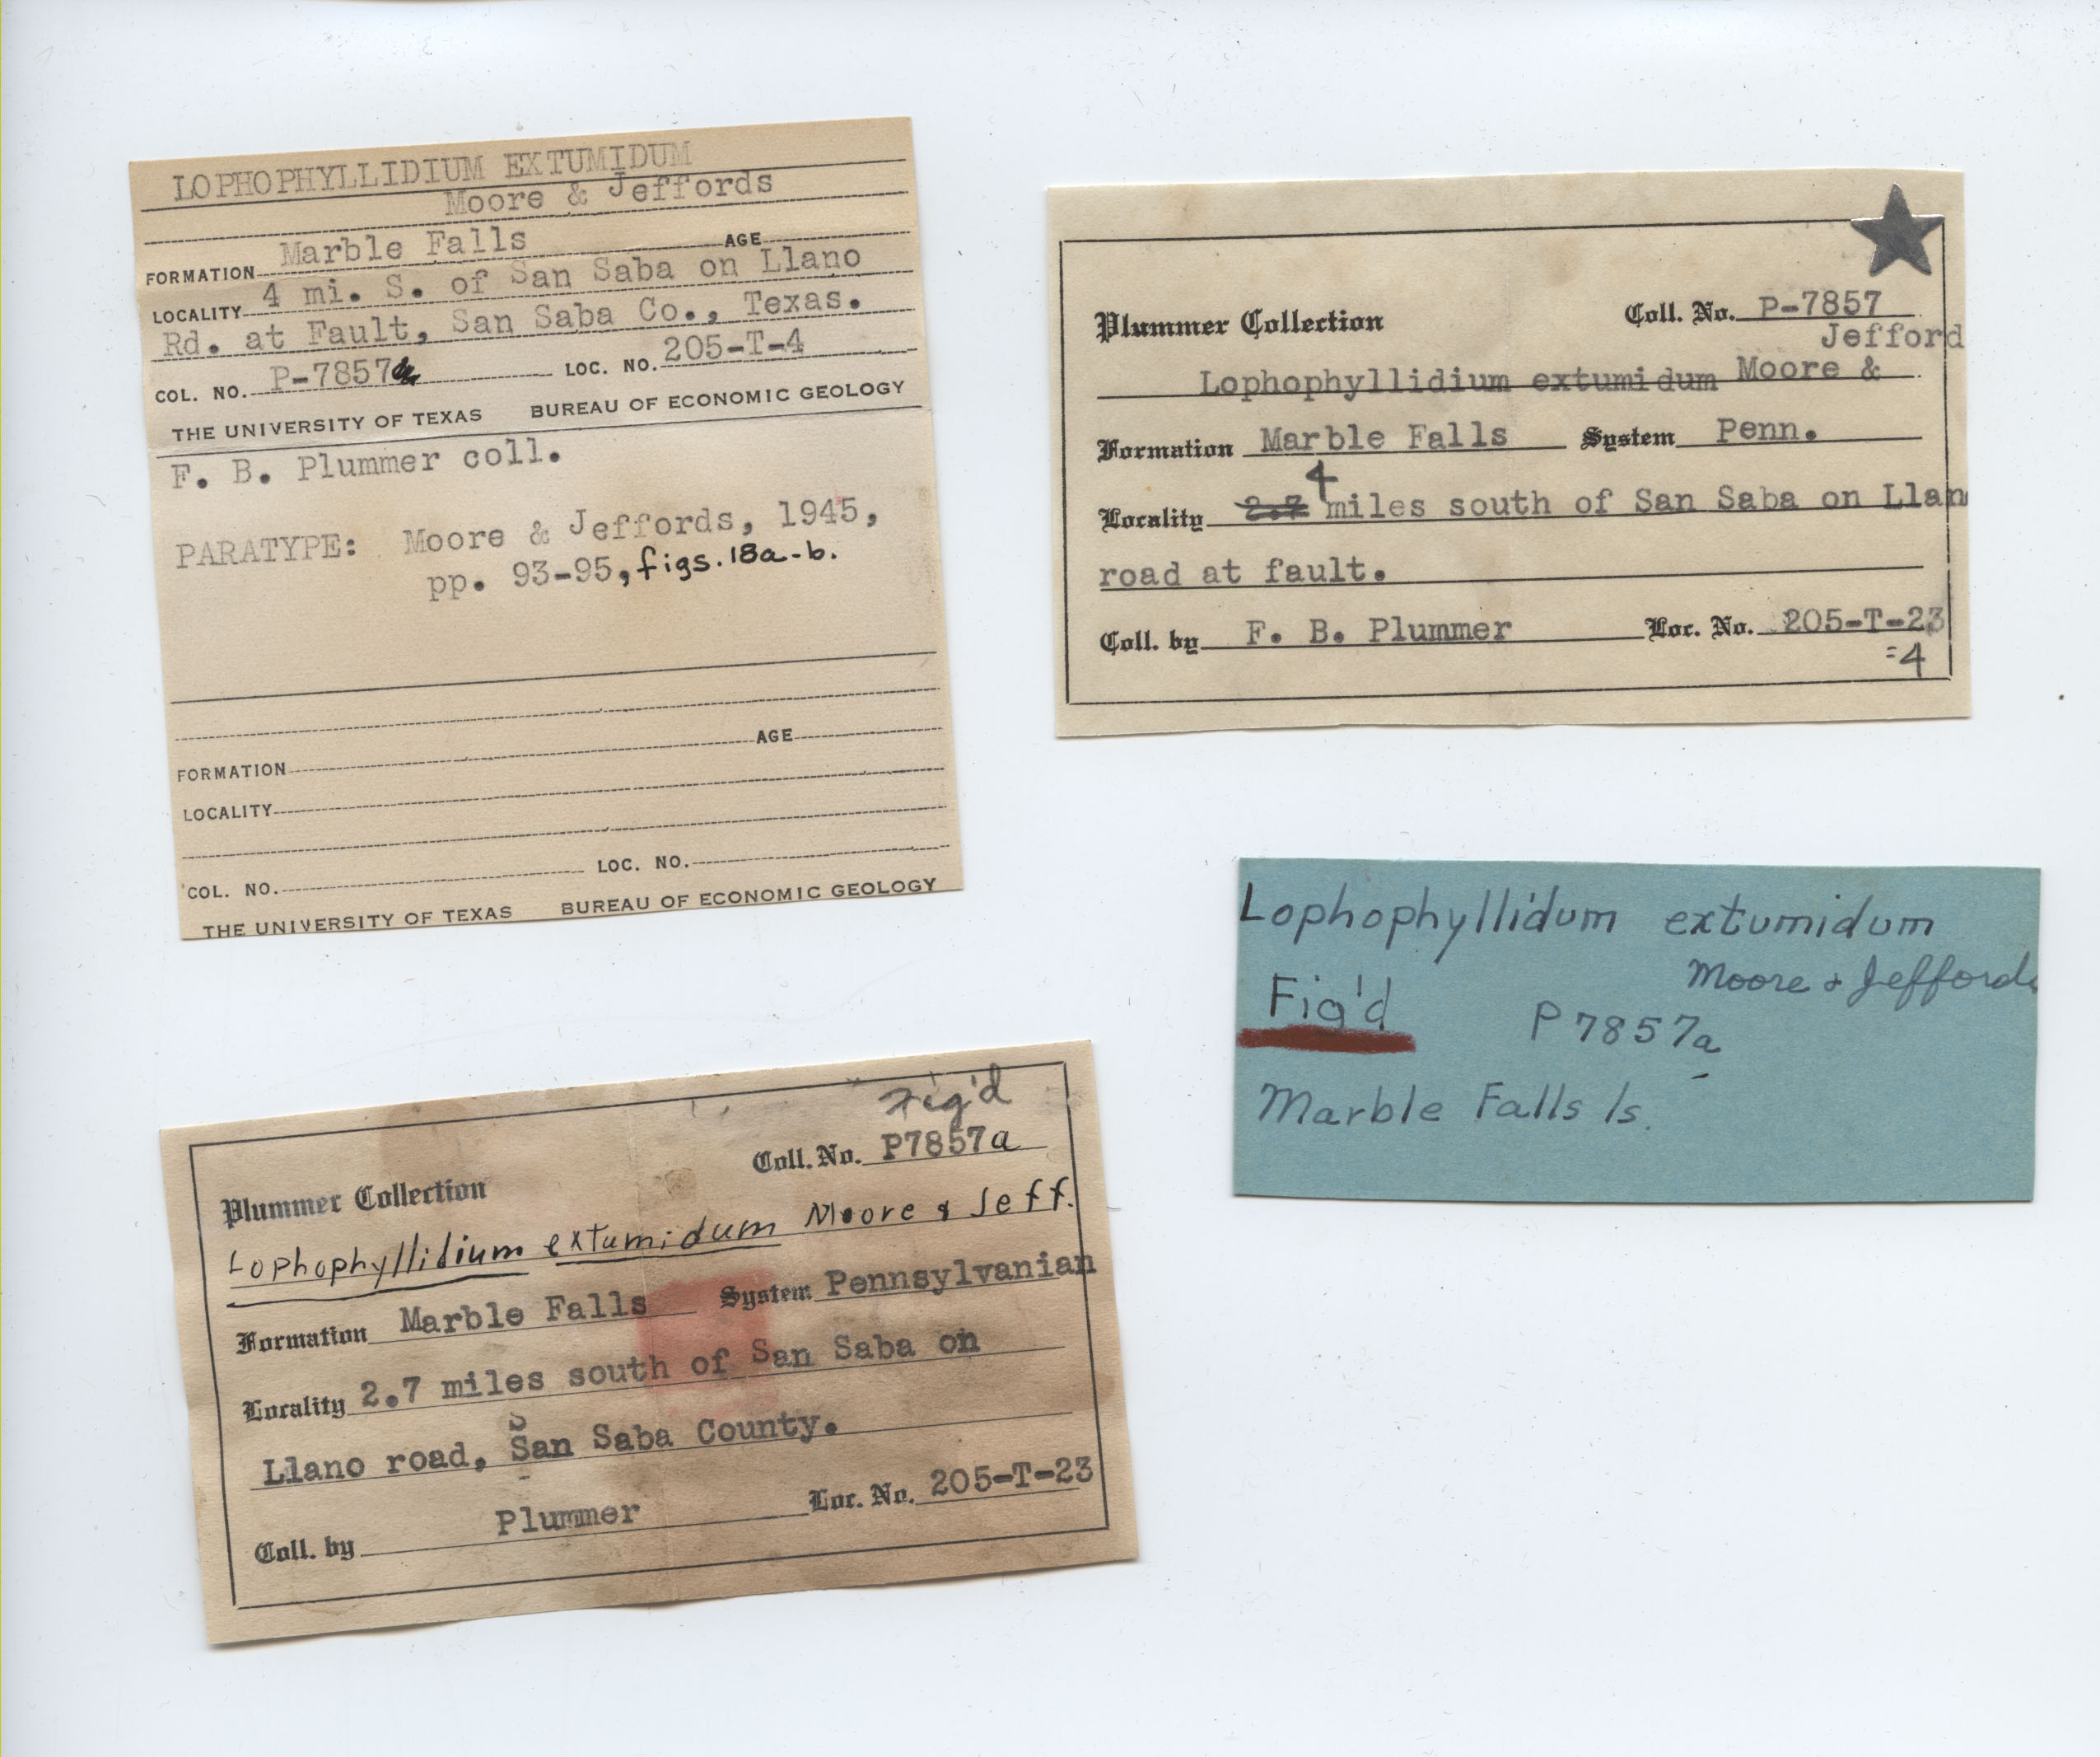 LOPHOPHYLLIDIUM EXTUMIDUM
Moore & Jeffords
FORMATION Marble Falls AGE
LOCALITY 4 mi. S. of San Saba on Llano
Rd. at Fault, San Saba Co., Texas.
COL. NO. P-7857 LOC. NO. 205-T-4
THE UNIVERSITY OF TEXAS BUREAU OF ECONOMIC GEOLOGY
F. B. Plummer coll.
PARATYPE: Moore & Jeffords, 1945,
pp. 93-95, figs. 18a-b.
FORMATION AGE
LOCALITY
COL. NO. LOC. NO.
THE UNIVERSITY OF TEXAS BUREAU OF ECONOMIC GEOLOGY
Plummer Collection Coll. No. P-7857
Jefford
Lophophyllidium extumidum Moore &
Formation Marble Falls System Penn.
4
Locality 2.7 miles south of San Saba on Llan
road at fault.
Coll. by F. B. Plummer Loc. No. 205-T-23
=4
Lophophyllidum extumidum
Moore & Jefford
Fig'd P7857a
Marble Falls ls.
Fig'd
Coll. No. P7857a
Plummer Collection
Lophophyllidium extumidum Moore & Jeff.
Formation Marble Falls System Pennsylvanian
Locality 2.7 miles south of San Saba on
Llano road, San Saba County.
Coll. by Plummer Loc. No. 205-T-23